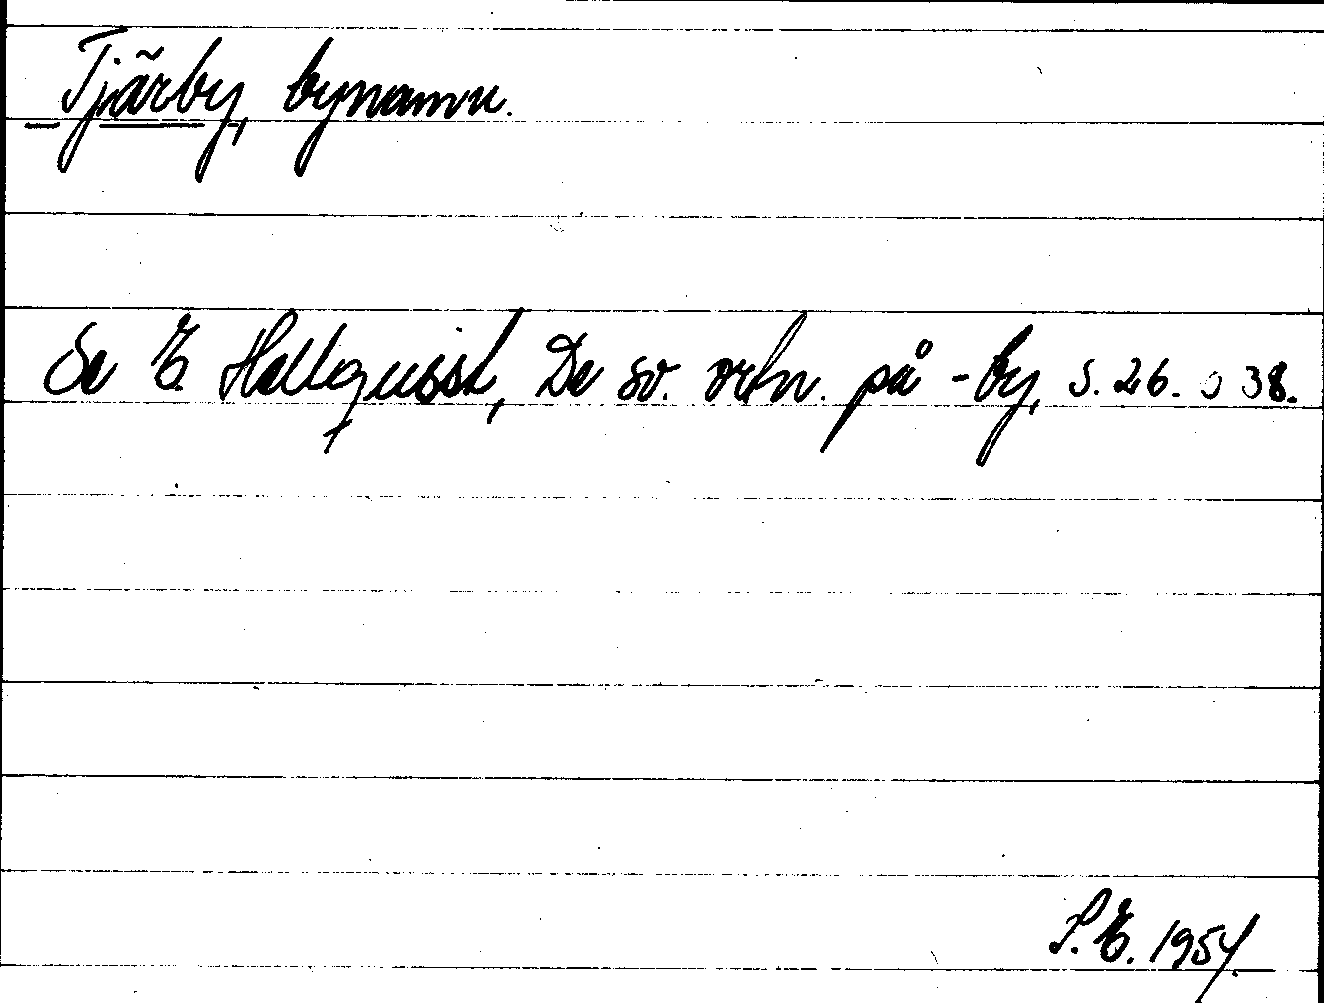 Tjärby, bynamn.
Se E. Hellquist, De sv. ortn. på -by, s. 26. o 38.
S. E. 1954.